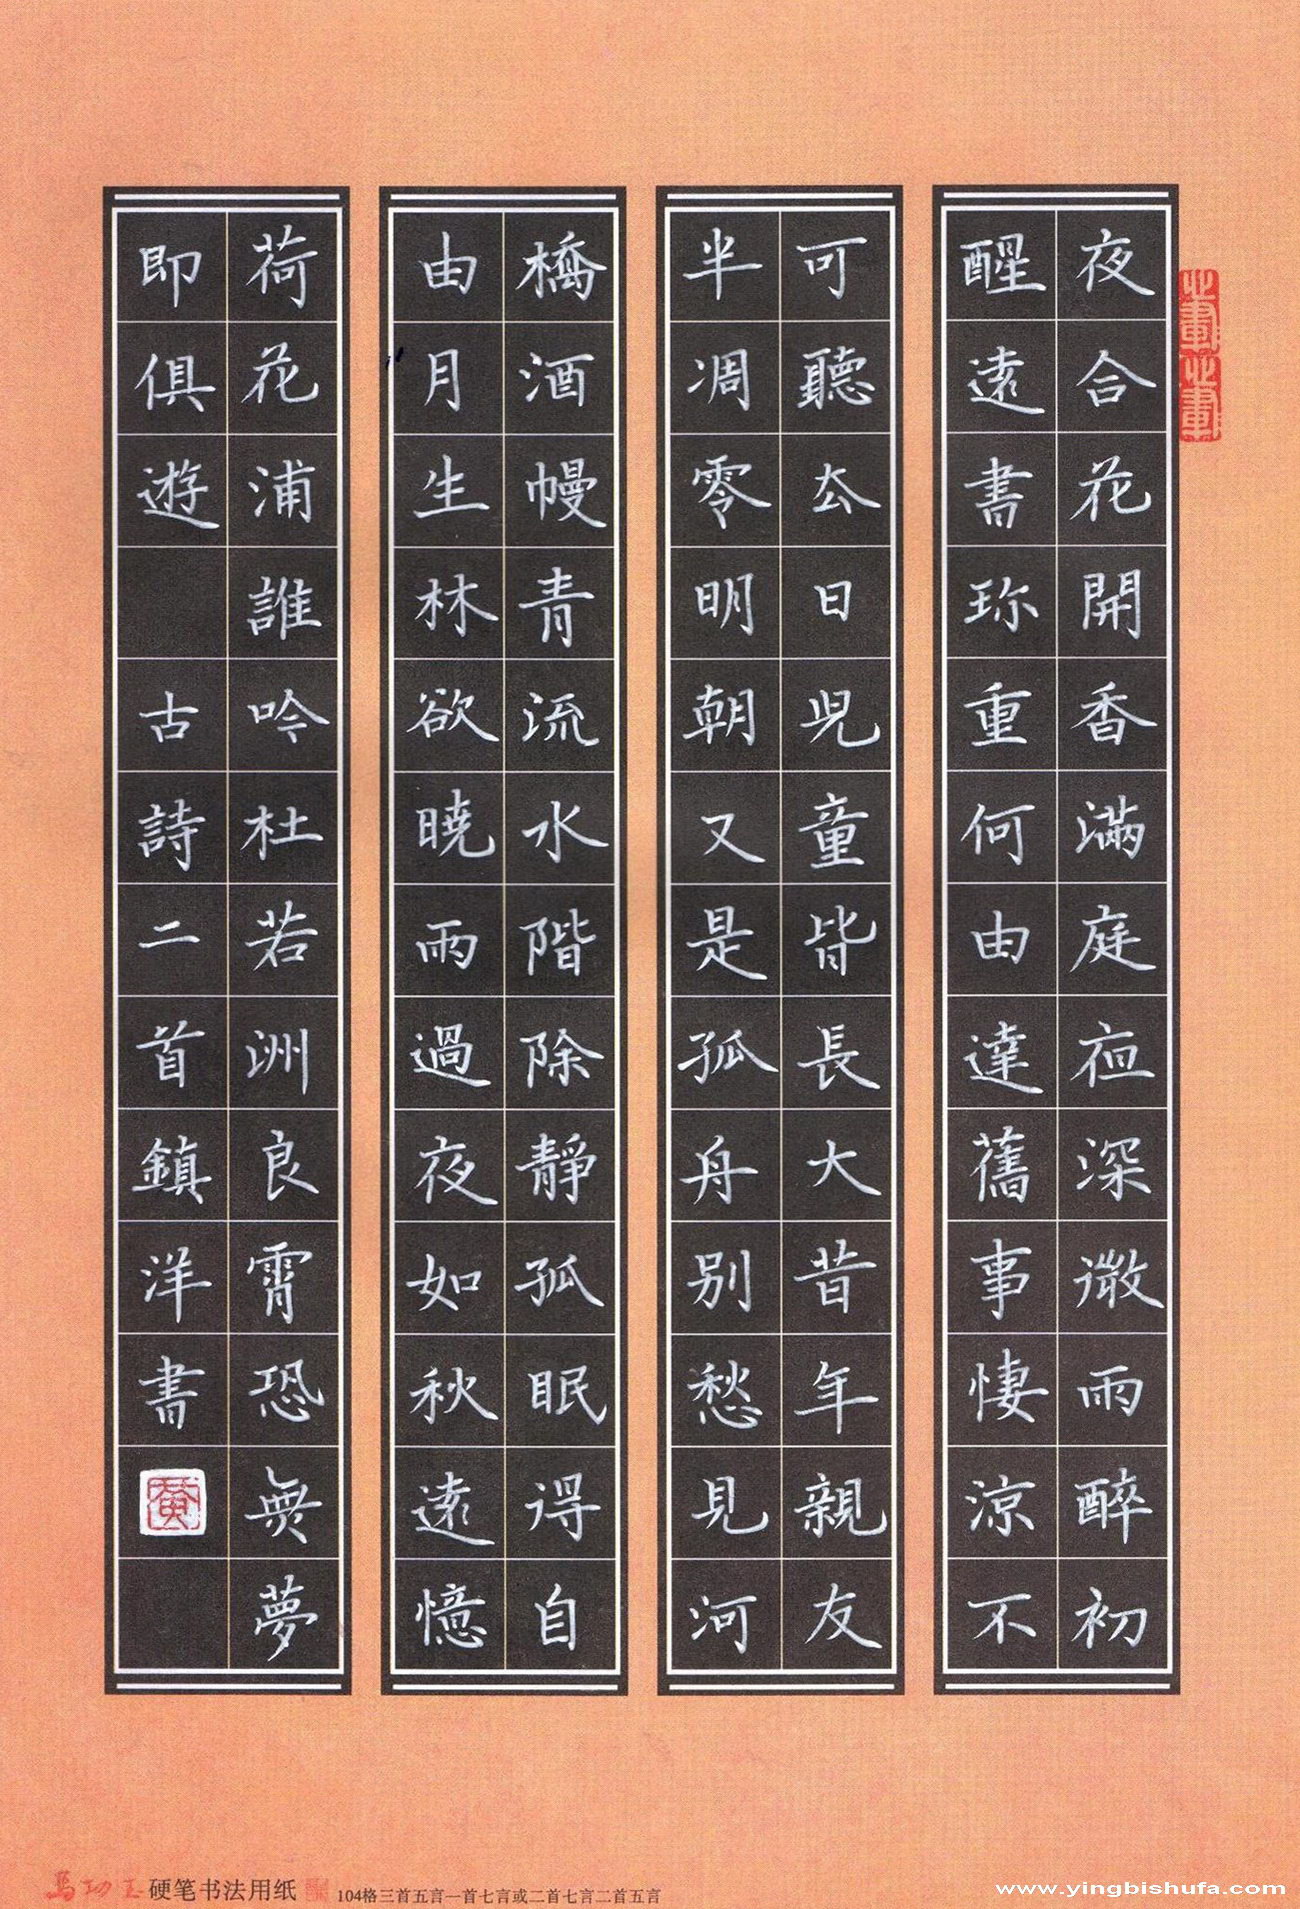 夜合花開香滿庭亱深微雨醉初
醒遠書珎重何由達舊事悽涼不
可聽厺日兒童皆長大昔年親友
半凋零明朝又是孤舟別愁見河
橋酒幔青流水階除靜孤眠得自
由月生林欲曉雨過夜如秋遠憶
荷花浦誰吟杜若洲良霄恐無夢
即俱遊 古詩二首鎮洋書
硬笔书法用纸
104格三首五言一首七言或二首七言二首五言
www.yingbishufa.com